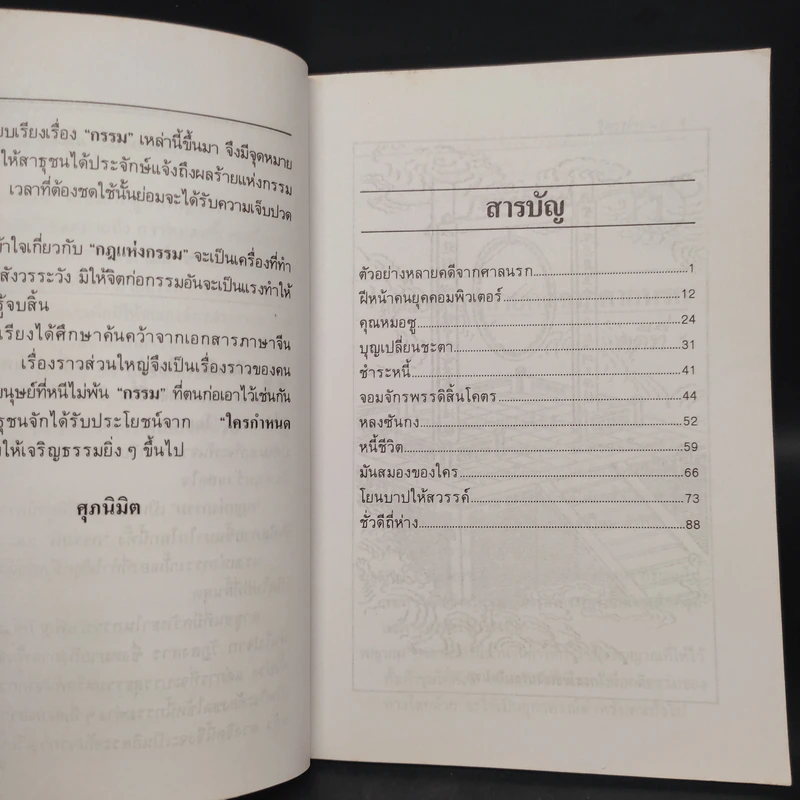 บเรียงเรื่อง “กรรม” เหล่านี้ขึ้นมา จึงมีจุดหมาย
ให้สาธุชนได้ประจักษ์แจ้งถึงผลร้ายแห่งกรรม
เวลาที่ต้องชดใช้นั้นย่อมจะได้รับความเจ็บปวด
เกี่ยวกับ “กฎแห่งกรรม” จะเป็นเครื่องที่ทำ
สังวรระวัง มิให้จิตก่อกรรมอันจะเป็นแรงทำให้
จบสิ้น
เรียงได้ศึกษาค้นคว้าจากเอกสารภาษาจีน
เรื่องราวส่วนใหญ่จึงเป็นเรื่องราวของคน
นุษย์ที่หนีไม่พ้น “กรรม” ที่ตนก่อเอาไว้เช่นกัน
ธุชนจักได้รับประโยชน์จาก “ใครกำหนด
ให้เจริญธรรมยิ่ง ๆ ขึ้นไป
ศุภนิมิต
สารบัญ
ตัวอย่างหลายคดีจากศาลนรก 1
ฝีหน้าคนยุคคอมพิวเตอร์ 12
คุณหมอซู 24
บุญเปลี่ยนชะตา 31
ชำระหนี้ 41
จอมจักรพรรดิสิ้นโคตร 44
หลงซันกง 52
หนี้ชีวิต 59
มันสมองของใคร 66
โยนบาปให้สวรรค์ 73
ชั่วดีถี่ห่าง 88